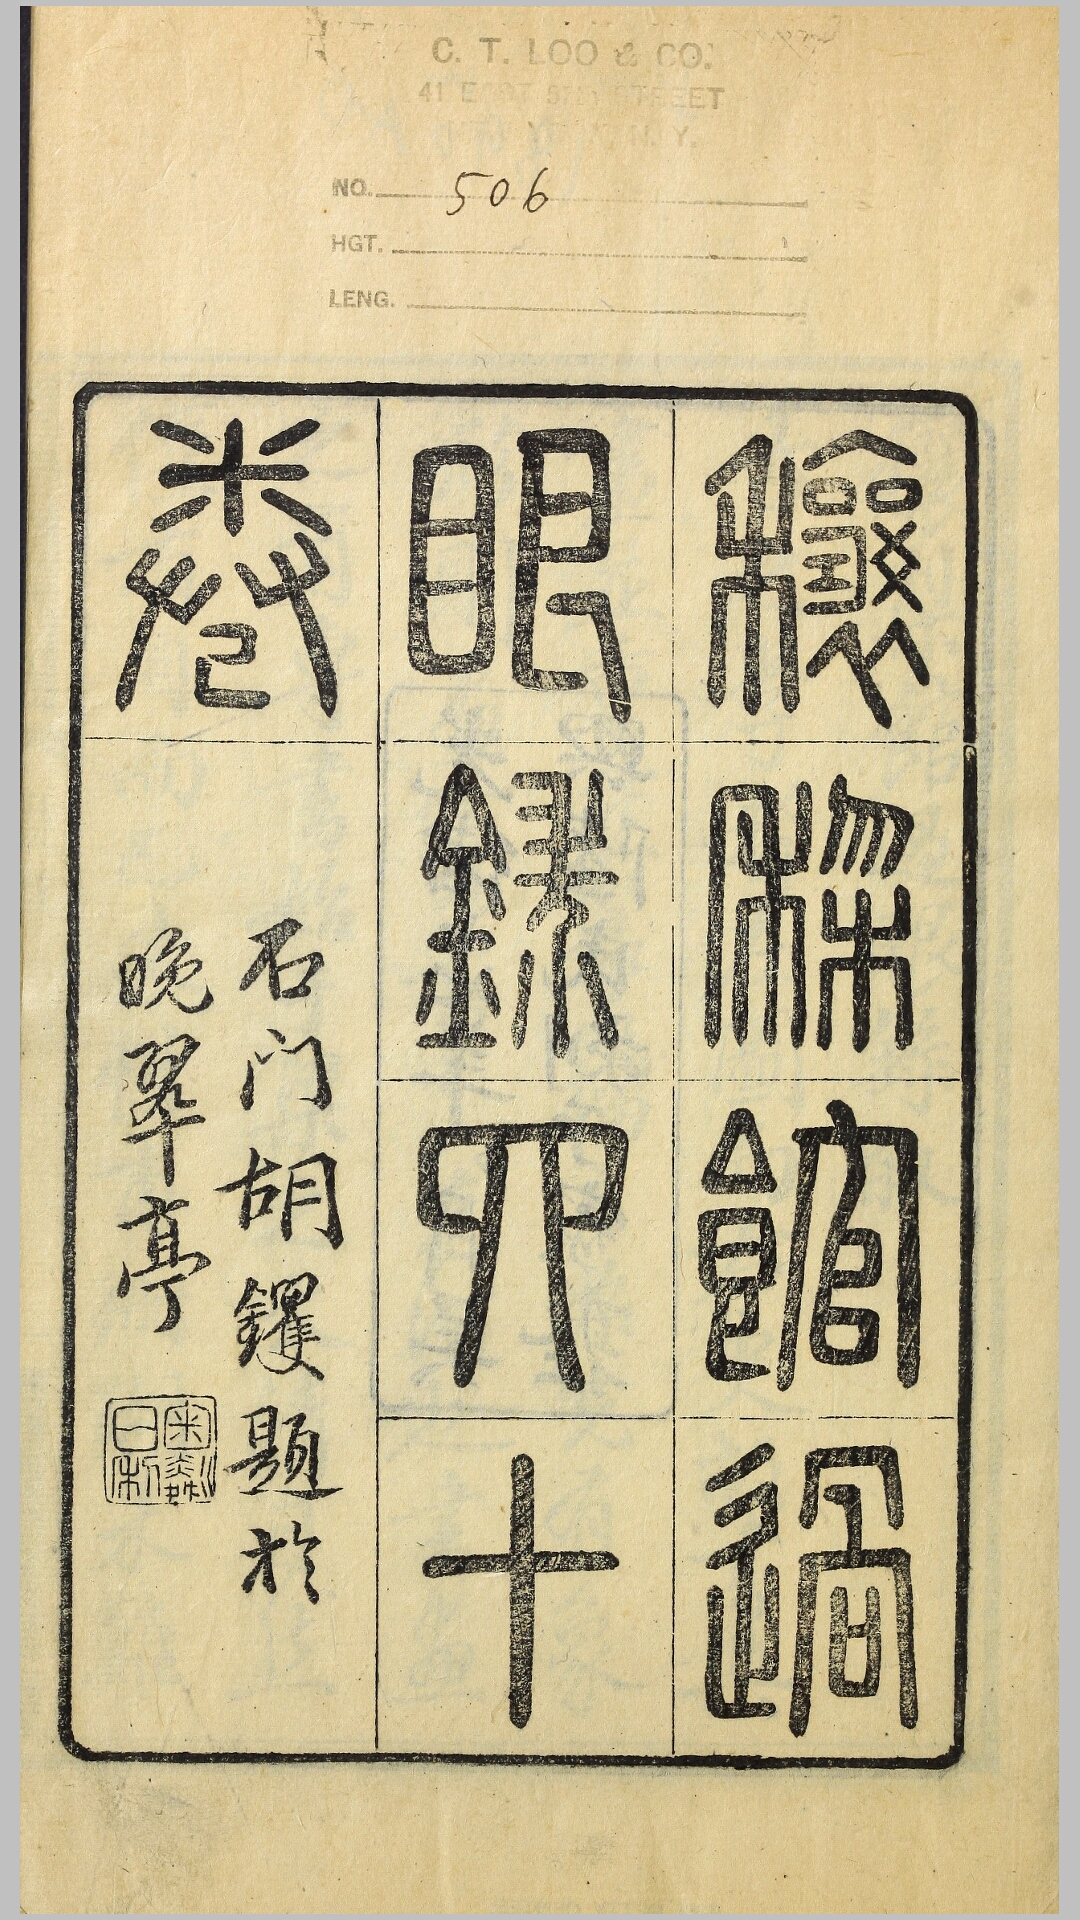 C. T. LOO & CO.
41 EAST 57TH STREET
N.Y.
NO. 506
HGT.
LENG.
穰梨館過
眼錄四十
卷
石门胡钁題於
晚翠亭